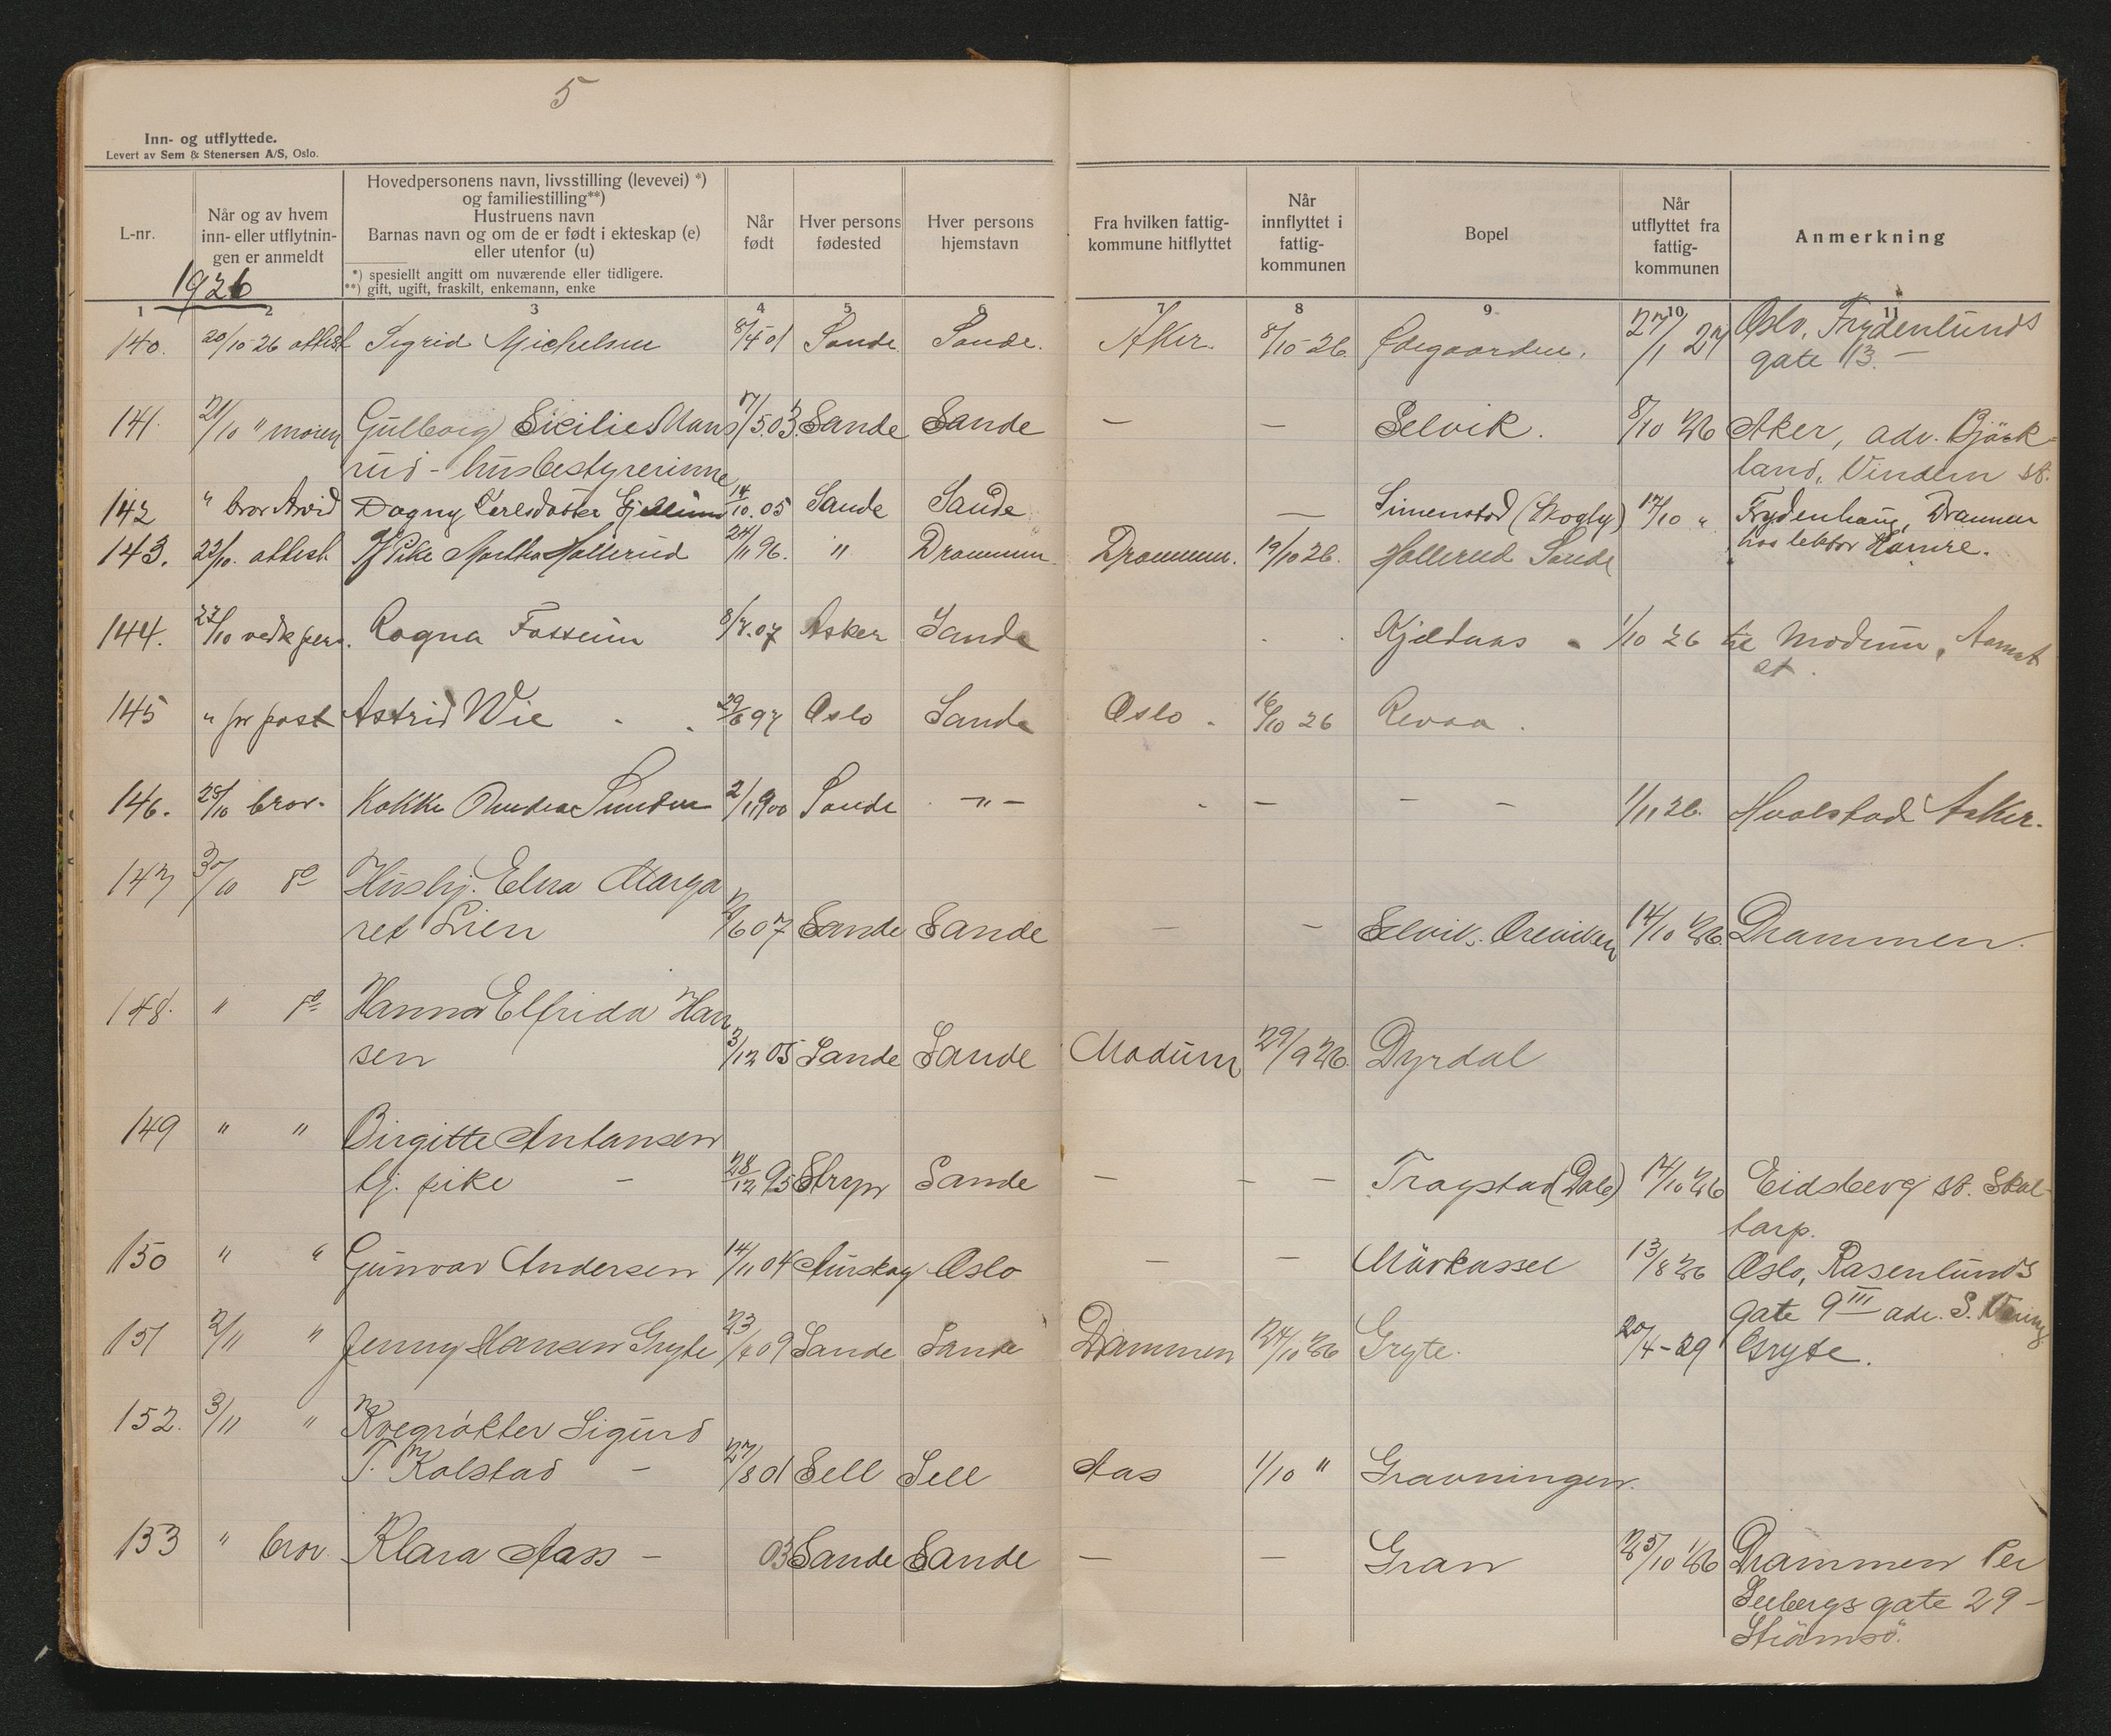 5
Inn- og utflyttede.
Levert av Sem & Stenersen A/S, Oslo.
L-nr.
Når og av hvem
inn- eller utflytnin-
gen er anmeldt
1926
Hovedpersonens navn, livsstilling (levevei) *)
og familiestilling**)
Hustruens navn
Barnas navn og om de er født i ekteskap (e)
eller utenfor (u)
*) spesiellt angitt om nuværende eller tidligere.
**) gift, ugift, fraskilt, enkemann, enke
Når
født
Hver persons
fødested
Hver persons
hjemstavn
Fra hvilken fattig-
kommune hitflyttet
Når
innflyttet i
fattig-
kommunen
Bopel
Når
utflyttet fra
fattig-
kommunen
Anmerkning
1 2 3 4 5 6 7 8 9 10 11
140. 20/10-26 attest Sigrid Michelsen 8/4 01 Sande Sande. Aker. 8/10-26. Ødegaarden. 27/1 27 Oslo, Frydenlunds
gate 13. –
141. 21/10 " moren Gulborg Sicilie Mans 7/5.03. Sande Sande – – Selvik. 8/10 26 Aker, adr. Bjørk-
rud - husbestyrerinne land, Vindern st.
142 " bror Arvid Dagny Karlsdatter 14/10.05 Sande Sande – Simenstad (Skogly) 17/10 " Frydenhaug, Drammen
hos lektor Hamre.
143. 22/10. attest Pike Martha Hallerud 24/11 96. " Drammen. Drammen. 19/10 26. Hallerud Sande
144. 23/10 vedk pers. Ragna Fossum 8/7.07 Asker Sande Kjeldaas 1/10 26 til Modum, Aamot
st.
145 " pr post Astrid Wie 29/6 97 Oslo Sande Oslo 16/10 26 Revaa.
146. 25/10 bror. Kokke Sunden 2/11 900 Sande –"– – – – – 1/11 26. Hvalstad Asker.
147 30/10 do Husbj. Elna Marga
ret Lien 6 07 Sande Sande – – Selvik. Oreviken 14/10 26. Drammen.
148. " do Hanna Elfrida Han
sen 3/12 05 Sande Sande Modum 29/9 26. Dyrdal
149 " " Birgitte Antansen
tj. pike – 28/12 95 Stryn Sande – – – Tragstad (Dale) 14/10 26 Eidsberg st. Skal-
tarp.
150 " " Gunvar Andersen 14/11 04 Aurskog Oslo – – Markassel 13/8 26 Oslo, Rosenlunds
gate 9 III adr. S.
151 2/11 " Jenny Hansen Gryte 23/4 09 Sande Sande Drammen 24/10 26 Gryte. 20/4-29 Gryte.
152. 3/11 " Kvegrøkter Sigurd
T. Kolstad – 27/8 01 Sell Sell Aas 1/10 " Gravningen.
153 " bror. Klara Aass – 03 Sande Sande – – Gran 25/10 26 Drammen Per
Seebergs gate 29 –
Strømsø.